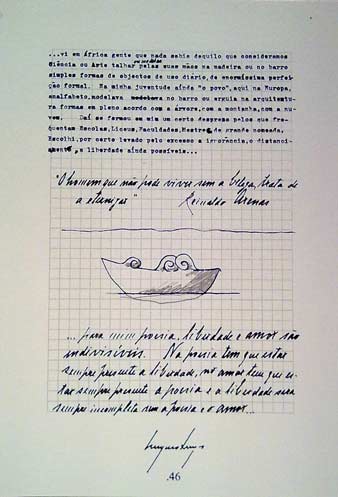 ...vi em África gente que nada sabia daquilo que consideramos
Ciência ou Arte talhar pelas suas mãos na madeira ou no barro
simples formas de objectos de uso diário, de enormíssima perfei-
ção formal. Na minha juventude aínda "o povo", aqui na Europa,
analfabeto, modelava no barro ou erguia na arquitectu-
ra formas em pleno acordo com a árvore, com a montanha, com a nu-
vem. Daí se formou em mim um certo desprezo pelos que fre-
quentam Escolas, Liceus, Faculdades, Mestres de grande nomeada.
Escolhi, por certo levado pelo excesso a ignorância, o distanci-
amento, a liberdade ainda possíveis...
"O homem que não pode viver sem a beleza, trata de
a eternizar" Reinaldo Arenas
... para mim poesia, liberdade e amor são
indivisíveis. Na poesia tem que estar
sempre presente a liberdade, no amor tem que es-
tar sempre presente a poesia e a liberdade será
sempre incompleta sem a poesia e o amor...
.46